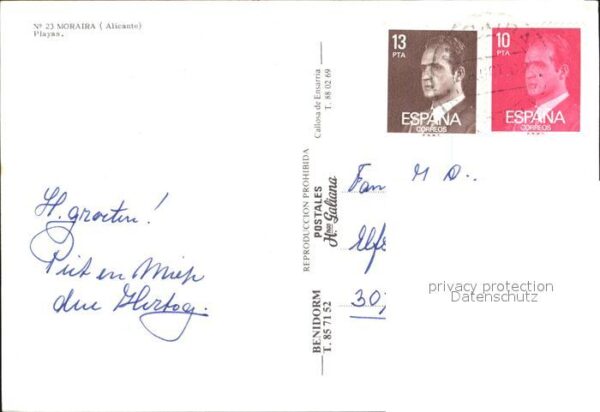 Nº 23 MORAIRA (Alicante)
Playas.
13
PTA
ESPAÑA
CORREOS
10
PTA
ESPAÑA
CORREOS
H. groeten!
Piet en Miep
den Hertog.
BENIDORM
T. 85 71 52
POSTALES
Hnos Galiana
Callosa de Ensarriá
T. 88 02 69
REPRODUCCION PROHIBIDA
Fam M D..
30,
privacy protection
Datenschutz